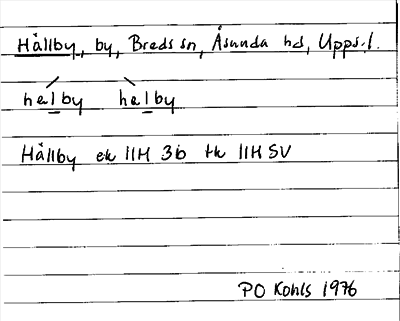 Hållby, by, Breds sn, Åsunda hd, Upps.l.
halby halby
Hållby ek 11H 3b tk 11H SV
PO Kohls 1976